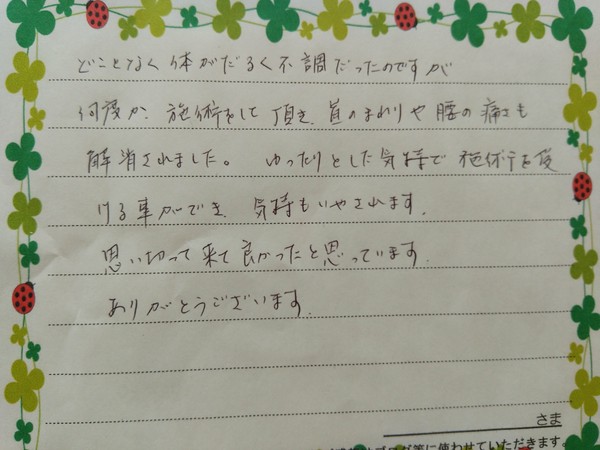 どことなく体がだるく不調だったのですが
何度か、施術をして頂き、首のまわりや腰の痛さも
解消されました。 ゆったりとした気持で施術を受
ける事ができ、気持もいやされます。
思い切って来て良かったと思っています。
ありがとうございます。
さま
ブログ等に使わせていただきます。